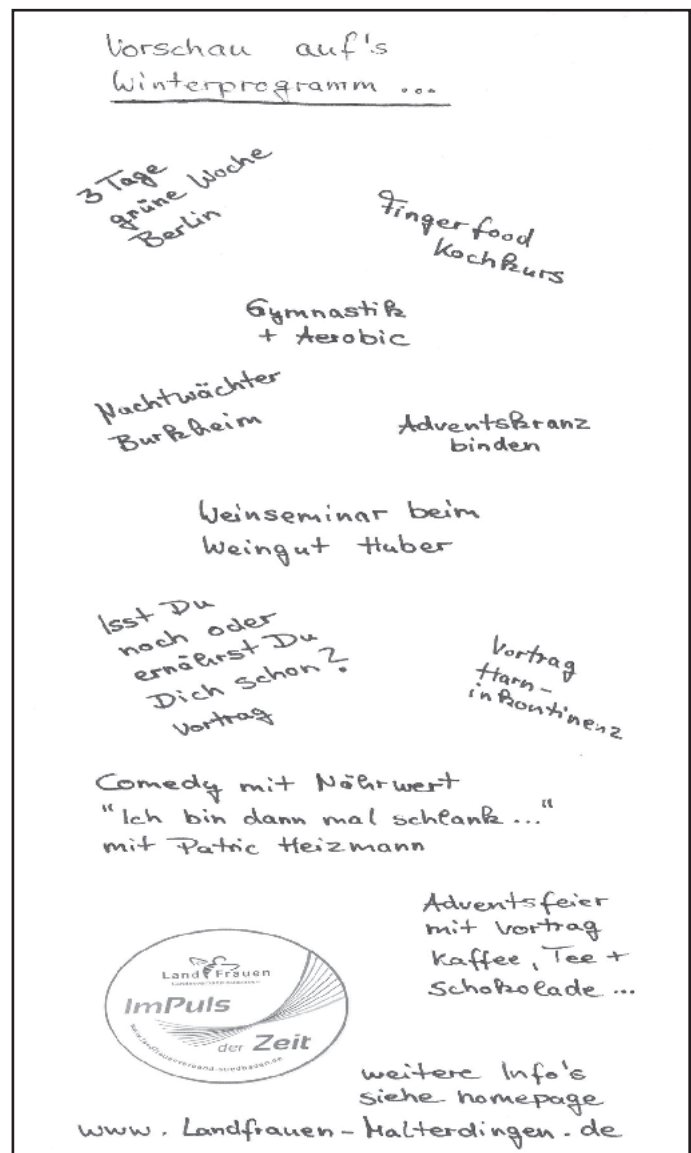 Vorschau auf's
Winterprogramm ...
3 Tage
grüne Woche
Berlin
Fingerfood
Kochkurs
Gymnastik
+ Aerobic
Nachtwächter
Burkheim
Adventskranz
binden
Weinseminar beim
Weingut Huber
Isst Du
noch oder
ernährst Du
Dich schon?
Vortrag
Vortrag
Harn-
inkontinenz
Comedy mit Nährwert
"Ich bin dann mal schlank..."
mit Patric Heizmann
Adventsfeier
mit Vortrag
Kaffee, Tee +
Schokolade ...
LandFrauen
ImPuls
der Zeit
www.landfrauenverband-suedbaden.de
weitere Info's
siehe homepage
www.Landfrauen-Malterdingen.de